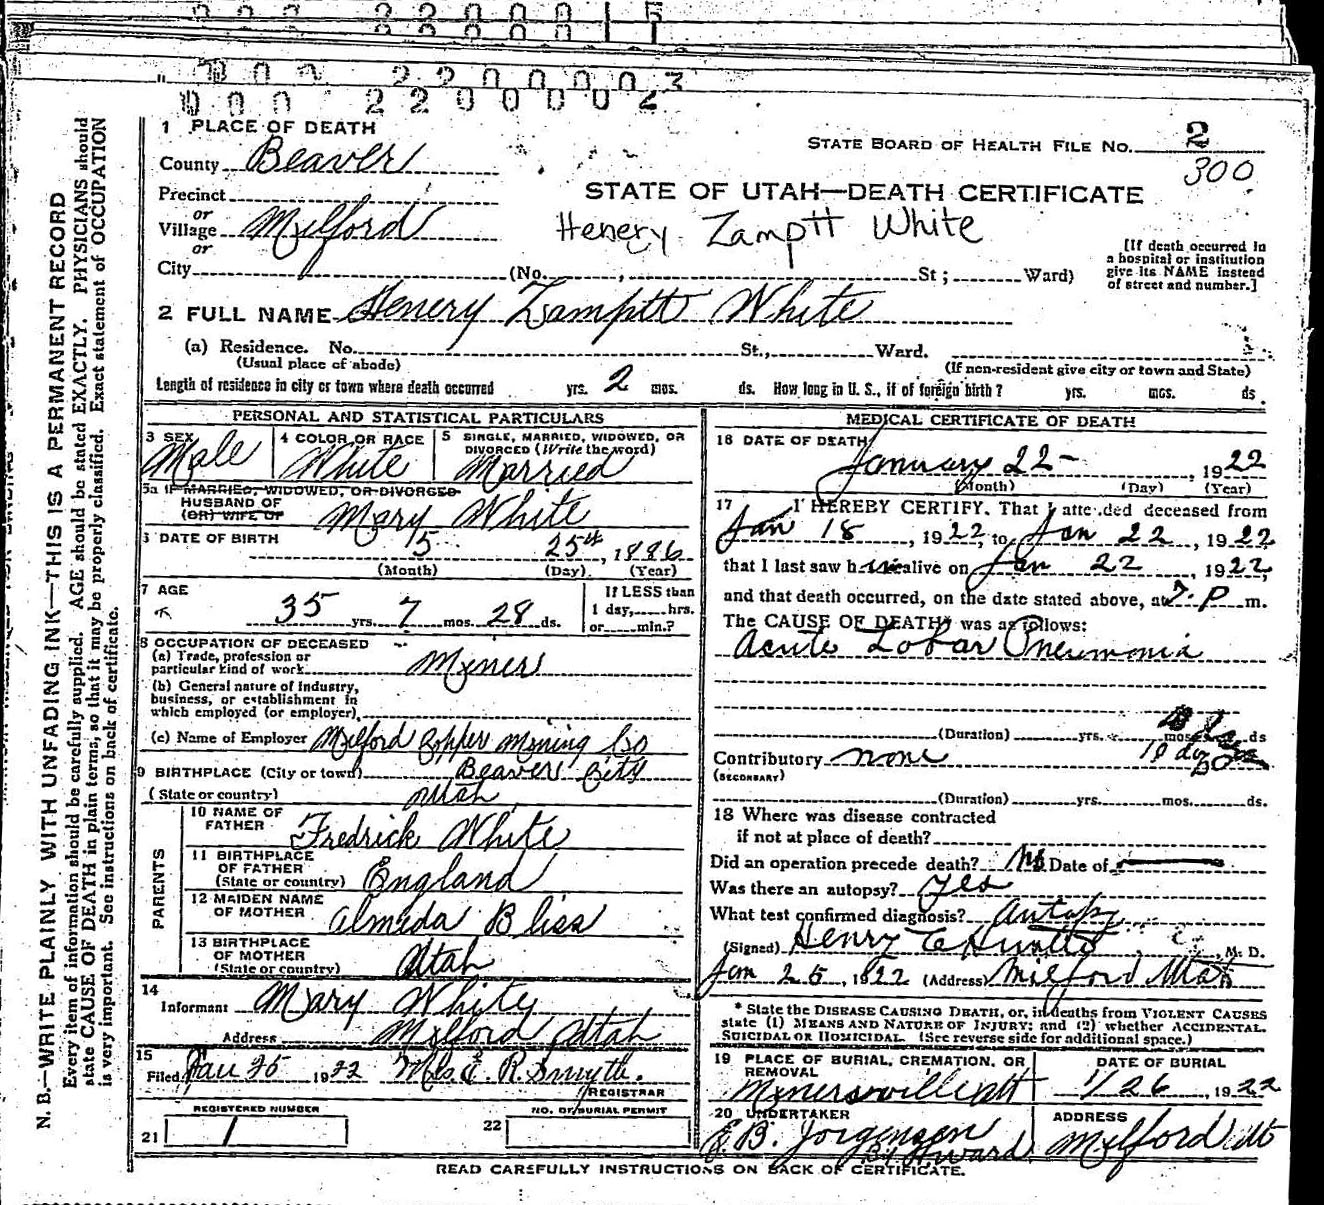 000 2200003
000 2200002
1 PLACE OF DEATH
County Beaver
STATE BOARD OF HEALTH FILE NO. 2
300
Precinct
or
STATE OF UTAH—DEATH CERTIFICATE
Village Milford
Henery Zamptt White
or
City (No. , St ; Ward)
[If death occurred in
a hospital or institution
give its NAME instead
of street and number.]
2 FULL NAME Henery Zamptt White
(a) Residence. No. St., Ward.
(Usual place of abode) (If non-resident give city or town and State)
Length of residence in city or town where death occurred yrs. 2 mos. ds. How long in U. S., if of foreign birth? yrs. mos. ds.
PERSONAL AND STATISTICAL PARTICULARS
3 SEX Male
4 COLOR OR RACE White
5 SINGLE, MARRIED, WIDOWED, OR
DIVORCED (Write the word)
Married
5a IF MARRIED, WIDOWED, OR DIVORCED
HUSBAND OF
(OR) WIFE OF Mary White
6 DATE OF BIRTH 5 25th, 1886
(Month) (Day) (Year)
7 AGE
35 yrs. 7 mos. 28 ds.
If LESS than
1 day, hrs.
or min.?
8 OCCUPATION OF DECEASED
(a) Trade, profession or
particular kind of work Myner
(b) General nature of Industry,
business, or establishment in
which employed (or employer)
(c) Name of Employer Milford Copper Mining Co
9 BIRTHPLACE (City or town) Beaver City
(State or country) Utah
PARENTS
10 NAME OF
FATHER Fredrick White
11 BIRTHPLACE
OF FATHER
(State or country) England
12 MAIDEN NAME
OF MOTHER Almeda Bliss
13 BIRTHPLACE
OF MOTHER
(State or country) Utah
14
Informant Mary White
Address Milford Utah
15
Filed Jan 25 1922 Mrs. E. R. Smyth.
REGISTRAR
REGISTERED NUMBER
21 1
NO. OF BURIAL PERMIT
22
MEDICAL CERTIFICATE OF DEATH
16 DATE OF DEATH
January 22- , 1922
(Month) (Day) (Year)
17 I HEREBY CERTIFY. That I attended deceased from
Jan 18 , 1922, to Jan 22 , 1922
that I last saw him alive on Jan 22 1922,
and that death occurred, on the date stated above, at 7. P m.
The CAUSE OF DEATH* was as follows:
Acute Lobar Pneumonia
(Duration) yrs. mos. ds
10 dys
Contributory none
(SECONDARY)
(Duration) yrs. mos. ds.
18 Where was disease contracted
if not at place of death?
Did an operation precede death? No Date of
Was there an autopsy? Yes
What test confirmed diagnosis? Autopsy
(Signed) Henry , M. D.
Jan 25, 1922 (Address) Milford Utah
* State the DISEASE CAUSING DEATH, or, in deaths from VIOLENT CAUSES
state (1) MEANS AND NATURE OF INJURY; and (2) whether ACCIDENTAL.
SUICIDAL OR HOMICIDAL. (See reverse side for additional space.)
19 PLACE OF BURIAL, CREMATION, OR
REMOVAL
Minersville Ut
DATE OF BURIAL
1/26, 1922
20 UNDERTAKER
E. B. Jorgensen
By Howard
ADDRESS
Milford Ut
READ CAREFULLY INSTRUCTIONS ON BACK OF CERTIFICATE.
N. B.—WRITE PLAINLY WITH UNFADING INK—THIS IS A PERMANENT RECORD
Every item of information should be carefully supplied. AGE should be stated EXACTLY. PHYSICIANS should
state CAUSE OF DEATH in plain terms, so that it may be properly classified. Exact statement of OCCUPATION
is very important. See instructions on back of certificate.